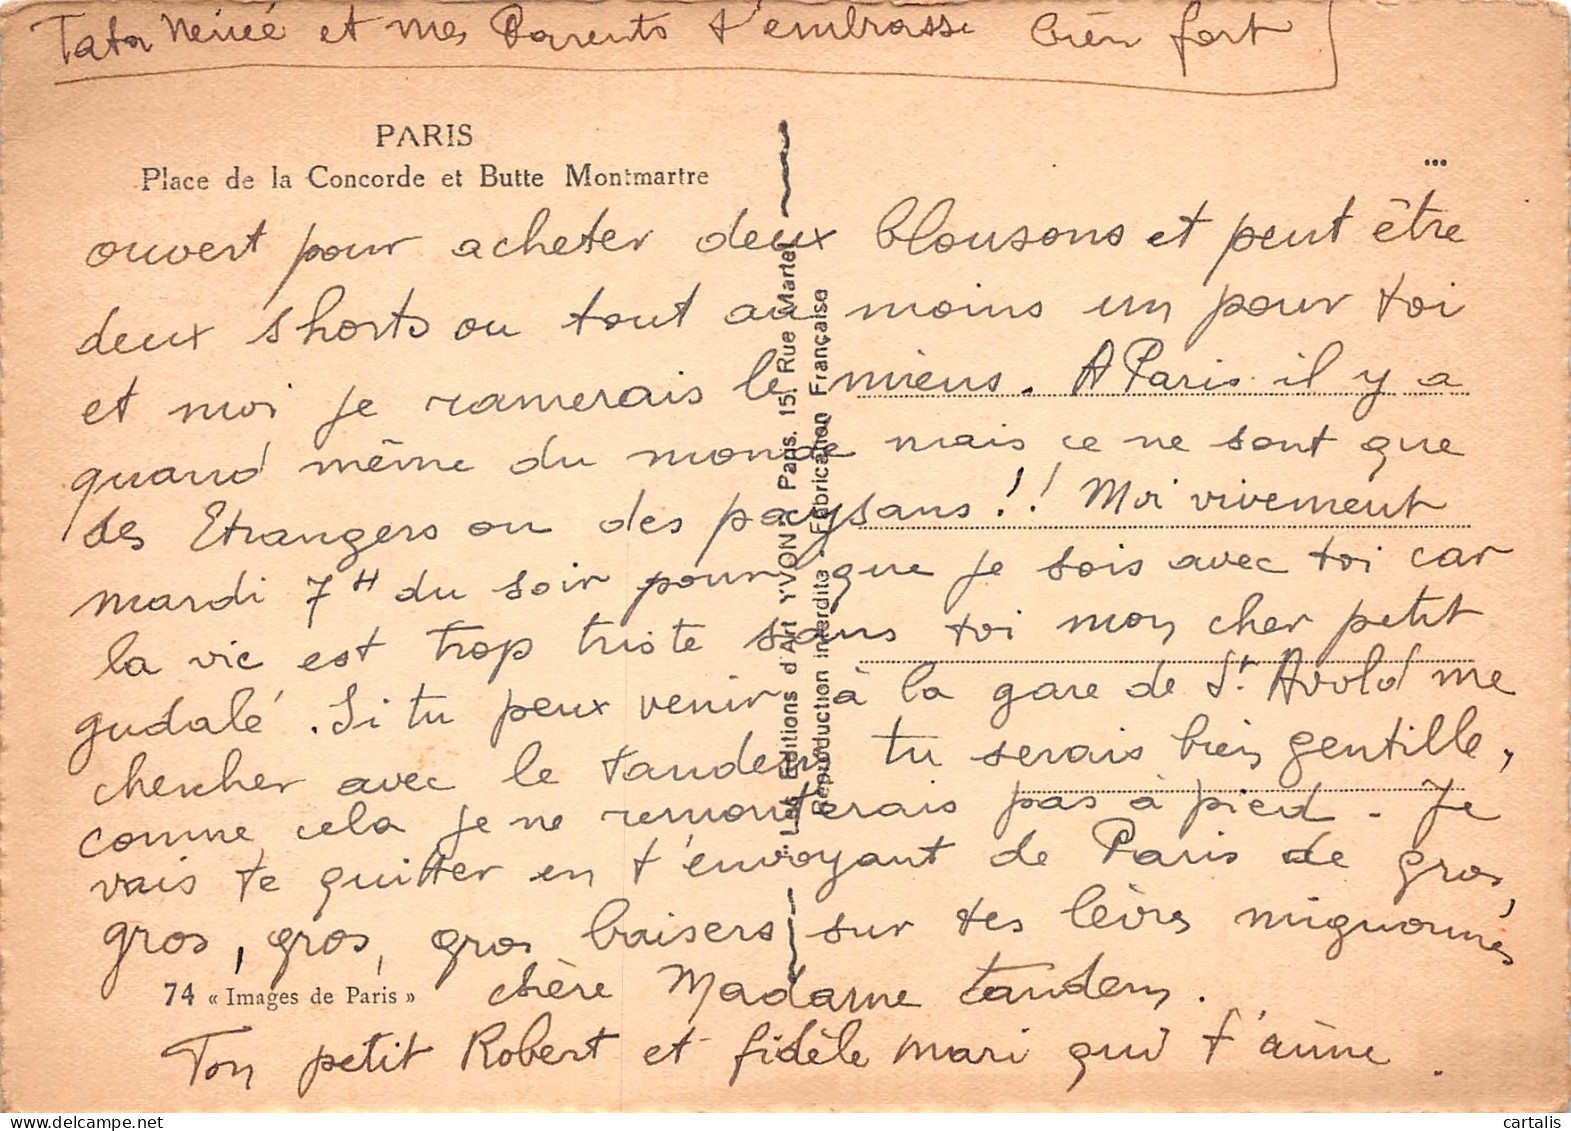 Tata Néné et mes Parents t'embrasse bien fort
PARIS
Place de la Concorde et Butte Montmartre
ouvert pour acheter deux blousons et peut être
deux shorts ou tout au moins un pour toi
et moi je ramerais le miens. A Paris il y a
quand même du monde mais ce ne sont que
des Etrangers ou des paysans!! Moi vivement
mardi 7H du soir pour que je sois avec toi car
la vie est trop triste sans toi mon cher petit
gudalé. Si tu peux venir à la gare de St. Avold me
chercher avec le tandem tu serais bien gentille,
comme cela je ne remonterais pas à pied. Je
vais te quitter en t'envoyant de Paris de gros,
gros, gros, gros baisers sur tes lèvres mignonnes
chère Madame tandem.
Ton petit Robert et fidèle mari qui t'aime.
74 « Images de Paris »
"Les Editions d'Art YVON" Paris. 15, Rue Martel
Reproduction interdite - Fabrication Française
cartalis